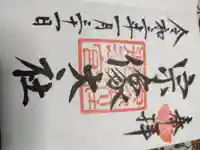 奉拝
宗像大社
令和二年一月二十一日